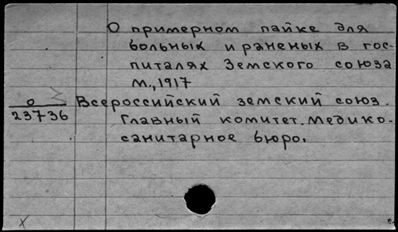 О примерном пайке для
больных и раненых в гос-
питалях Земского союза
М., 1917
0
23736
Всероссийский земский союз.
Главный комитет. Медико-
санитарное бюро.
x